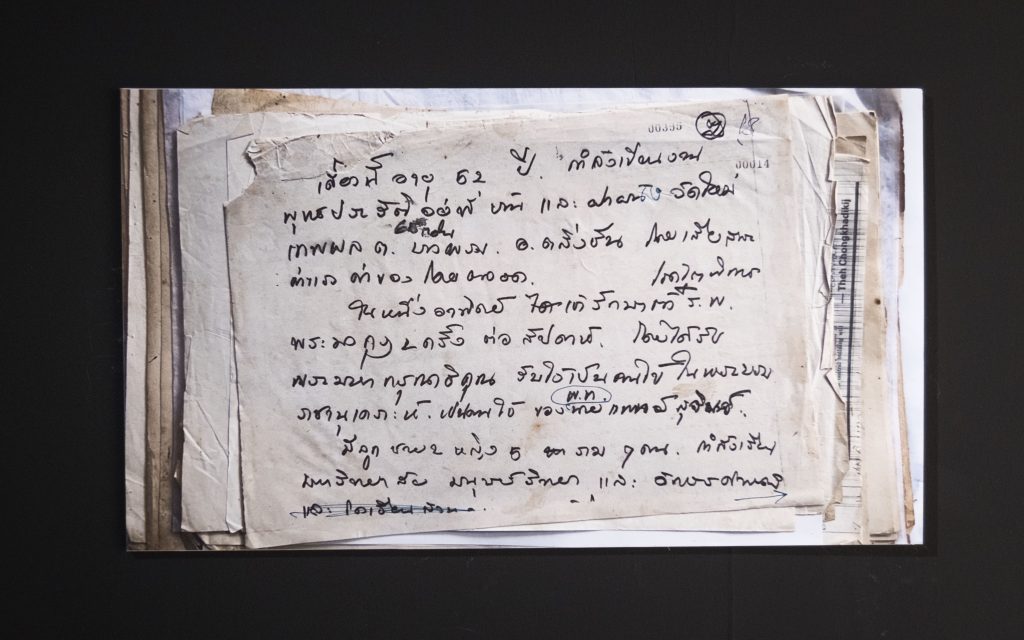 00395
28
00014
เดี๋ยวนี้ อายุ 62 ปี. กำลังเขียนงาน
พุทธประวัติ อยู่ที่ และ ฝาผนัง วัดใหม่
เทพผล ต. บางพรม. อ. ตลิ่งชัน โดยเสียสละ
ค่าแรง ค่าของ โดยตลอด.
ในหนึ่งอาทิตย์ รักษาตัวที่ ร.พ.
พระมงกุฎ ๒ ครั้ง ต่อ สัปดาห์. โดยได้รับ
พระมหากรุณาธิคุณ รับไว้เป็นคนไข้ ในพระบรม
พ.ท.
ราชานุเคราะห์. เป็นคนไข้ ของ
มีลูก ชาย ๒ หญิง 5 รวม ๗ คน. กำลังเรียน
มหาวิทยาลัย และ
และ
Theh Chongkhadikij